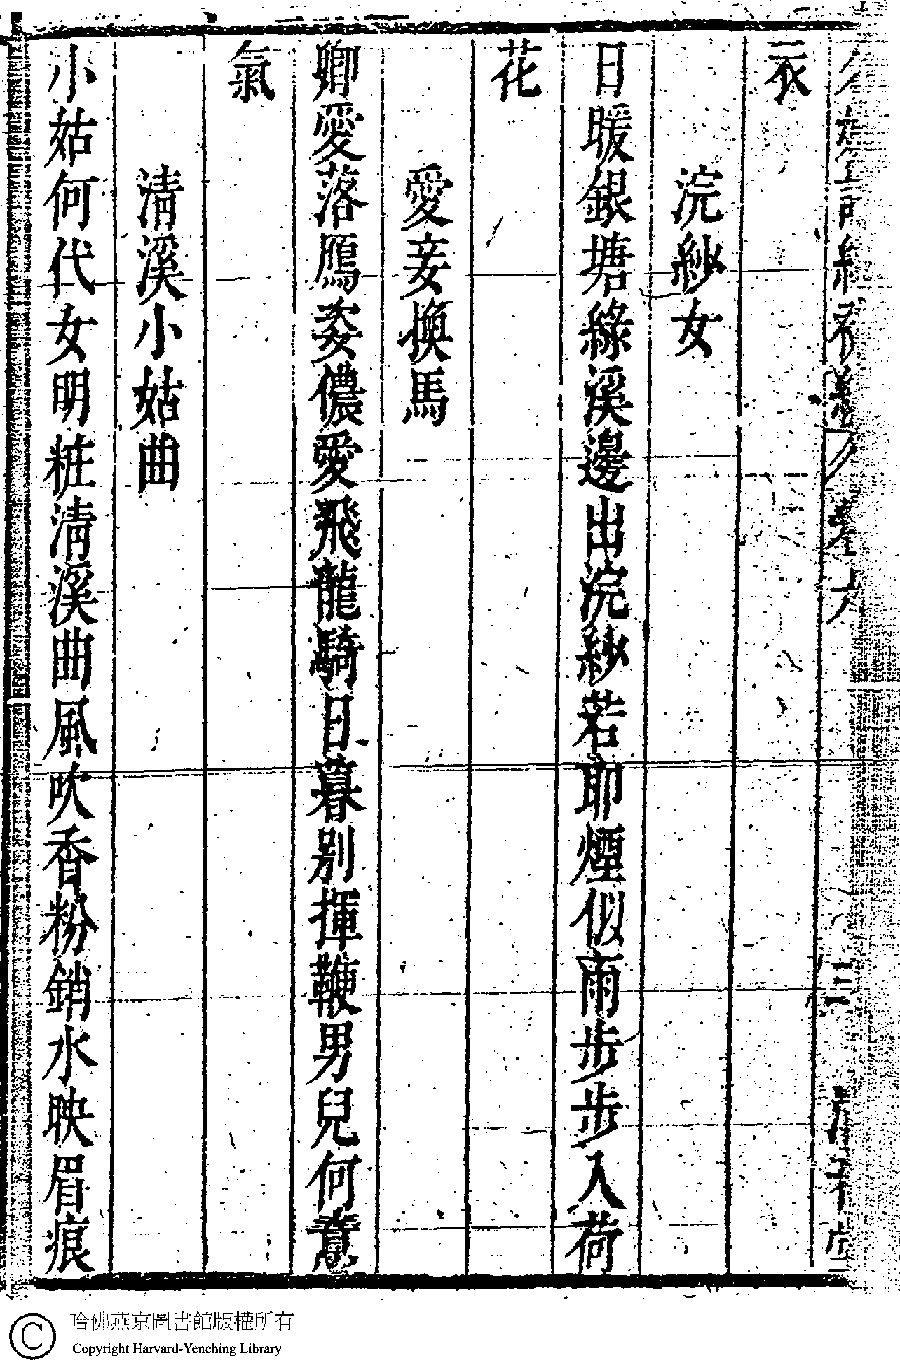 衣
浣紗女
日暖銀塘綠溪邊出浣紗若耶煙似雨步步入荷
花
愛妾換馬
卿愛落鴈姿儂愛飛龍騎日暮別揮鞭男兒何意
氣
清溪小姑曲
小姑何代女明粧清溪曲風吹香粉銷水映眉痕
哈佛燕京圖書館版權所有
Copyright Harvard-Yenching Library